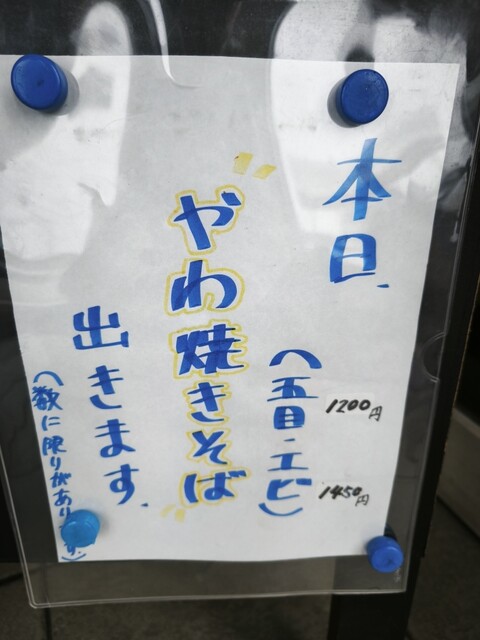 本日、
〝やわ焼きそば〟
(五目・エビ)
1200円
1450円
出きます、
(数に限りがあります。)